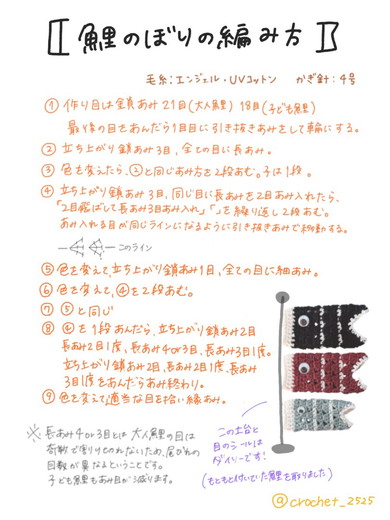 〚 鯉のぼりの編み方 〛
毛糸:エンジェル・UVコットン かぎ針:4号
① 作り目は鎖あみ21目(大人鯉) 18目(子ども鯉)
最後の目をあんだら1目目に引き抜きあみをして輪にする。
② 立ち上がり鎖あみ3目,全ての目に長あみ。
③ 色を変えたら,②と同じあみ方を2段あむ。子は1段。
④ 立ち上がり鎖あみ3目,同じ目に長あみを2目あみ入れたら、
「2目飛ばして長あみ3目あみ入れ」「」を繰り返し2段あむ。
あみ入れる目が同じラインになるように引き抜きあみで移動する。
このライン
⑤ 色を変えて,立ち上がり鎖あみ1目,全ての目に細あみ。
⑥ 色を変えて,④を2段あむ。
⑦ ⑤と同じ
⑧ ④を1段あんだら、立ち上がり鎖あみ2目
長あみ2目1度、長あみ4or3目、長あみ3目1度。
立ち上がり鎖あみ2目、長あみ2目1度、長あみ
3目1度をあんだらあみ終わり。
⑨ 色を変えて,適当な目を拾い縁あみ。
※ 長あみ4or3目とは 大人鯉の目は
奇数で割りきれないため、尾びれの
目数が異なるということです。
子ども鯉もあみ目が3減ります。
この土台と
目のシールは
ダイソーです!
(もともと付いていた鯉を取りました)
@crochet_2525